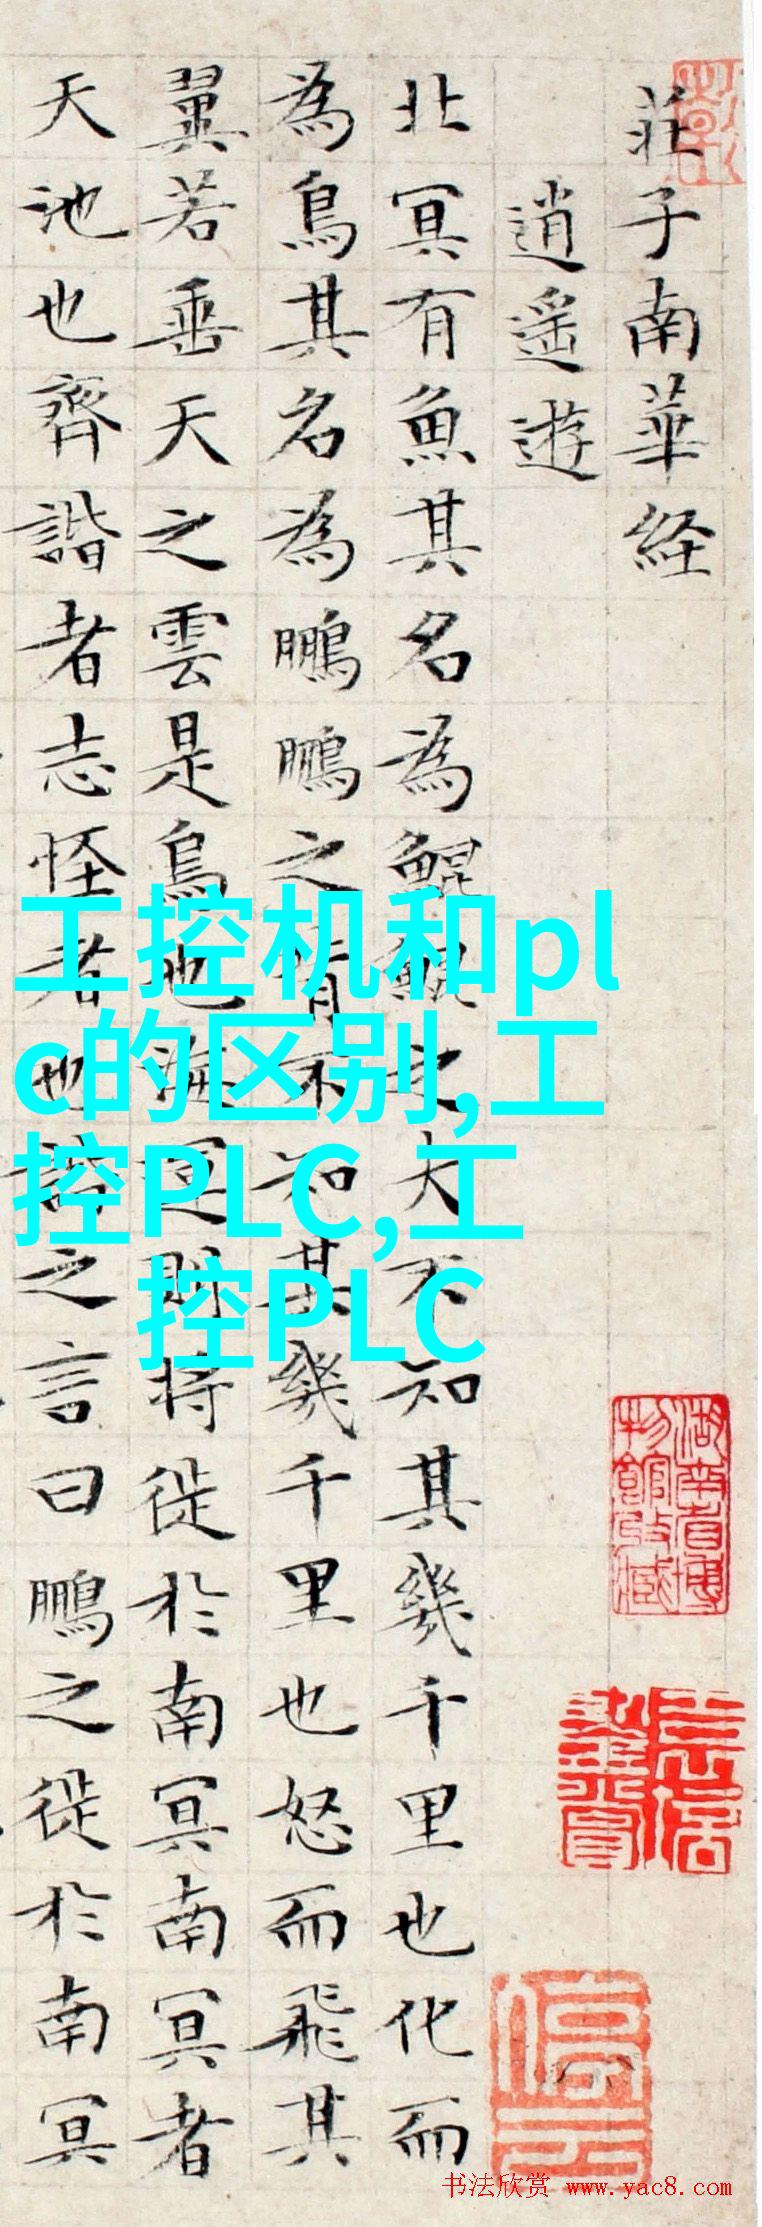 莊子南華経
逍遙遊
北冥有魚其名為鯤鯤之大不知其幾千里也化而
為鳥其名為鵬鵬之背不知其幾千里也怒而飛其
翼若垂天之雲是鳥也海運則將徙於南冥南冥者
天池也齊諧者志怪者也諧之言曰鵬之徙於南冥
工控机和pl
c的区别,工
控PLC,工
控PLC
湖南省博
物館收藏
书法欣赏 www.yac8.com